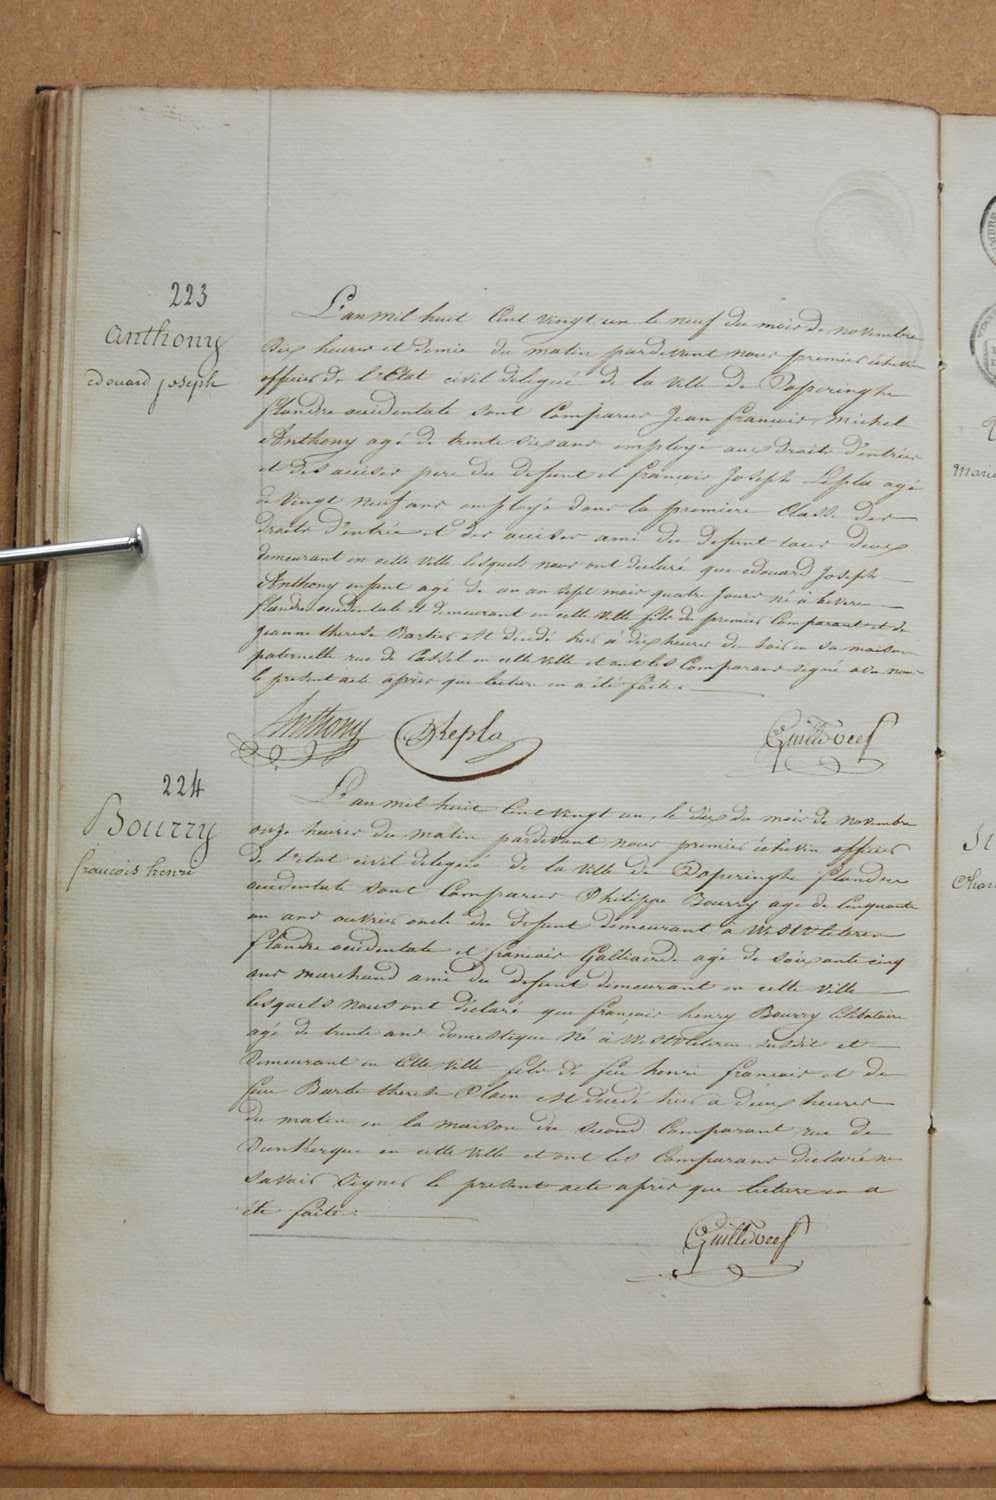 223
Anthony
edouard joseph
L'an mil huit Cent vingt un le neuf du mois de novembre
Dix heures et demie du matin pardevant nous premier échevin
officier de l'Etat civil delegué de la ville de Poperinghe
flandre occidentale sont Comparus Jean francois Michel
Anthony agé de trente six ans employé aux droits d'entrées
et des accises pere du defunt et francois Joseph Lepla agé
de vingt neuf ans employé dans la premiere Classe des
droits d'entrée et des accises ami du defunt tous deux
demeurant en cette ville lesquels nous ont déclaré que edouard Joseph
Anthony enfant agé de un an sept mois quatre jours né à
flandre occidentale et demeurant en cette ville fils du premier Comparant et de
jeanne therese Bartier est decedé hier à dix heures du soir en sa maison
paternelle rue de Cassel en cette ville et ont les Comparans signé avec nous
le present acte après que lecture en a été faite.
Anthony Lepla
224
Bourry
francois henri
L'an mil huit Cent vingt un, le dix du mois de novembre
onze heures du matin pardevant nous premier échevin officier
de l'etat civil delegué de la ville de Poperinghe flandre
occidentale sont Comparus Philippe Bourry agé de Cinquante
un ans ouvrier oncle du defunt demeurant à Westvleteren
flandre occidentale et francois Galliaerde agé de soixante cinq
ans marchand ami du defunt demeurant en cette ville
lesquels nous ont déclaré que francois henry Bourry Célibataire
agé de trente ans domestique né à Westvleteren susdit et
Demeurant en Cette ville fils de feu henri francois et de
feue Barbe therese est decedé hier à deux heures
du matin en la maison du second Comparant rue de
Dunkerque en cette ville et ont les Comparans déclaré ne
savoir signer le present acte après que lecture en a
été faite.